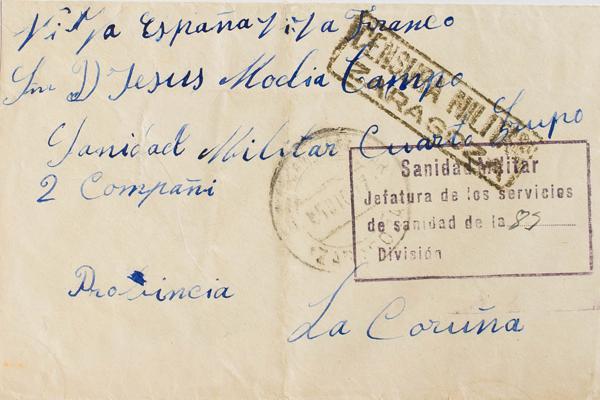 Viva España Viva Franco
Sn D Jesus Modia Campo
CENSURA MILITAR
ZARAGOZA
Sanidad Militar Cuarto Grupo
2 Compañi
Sanidad Militar
Jefatura de los servicios
de sanidad de la 85
División
Provincia
La Coruña